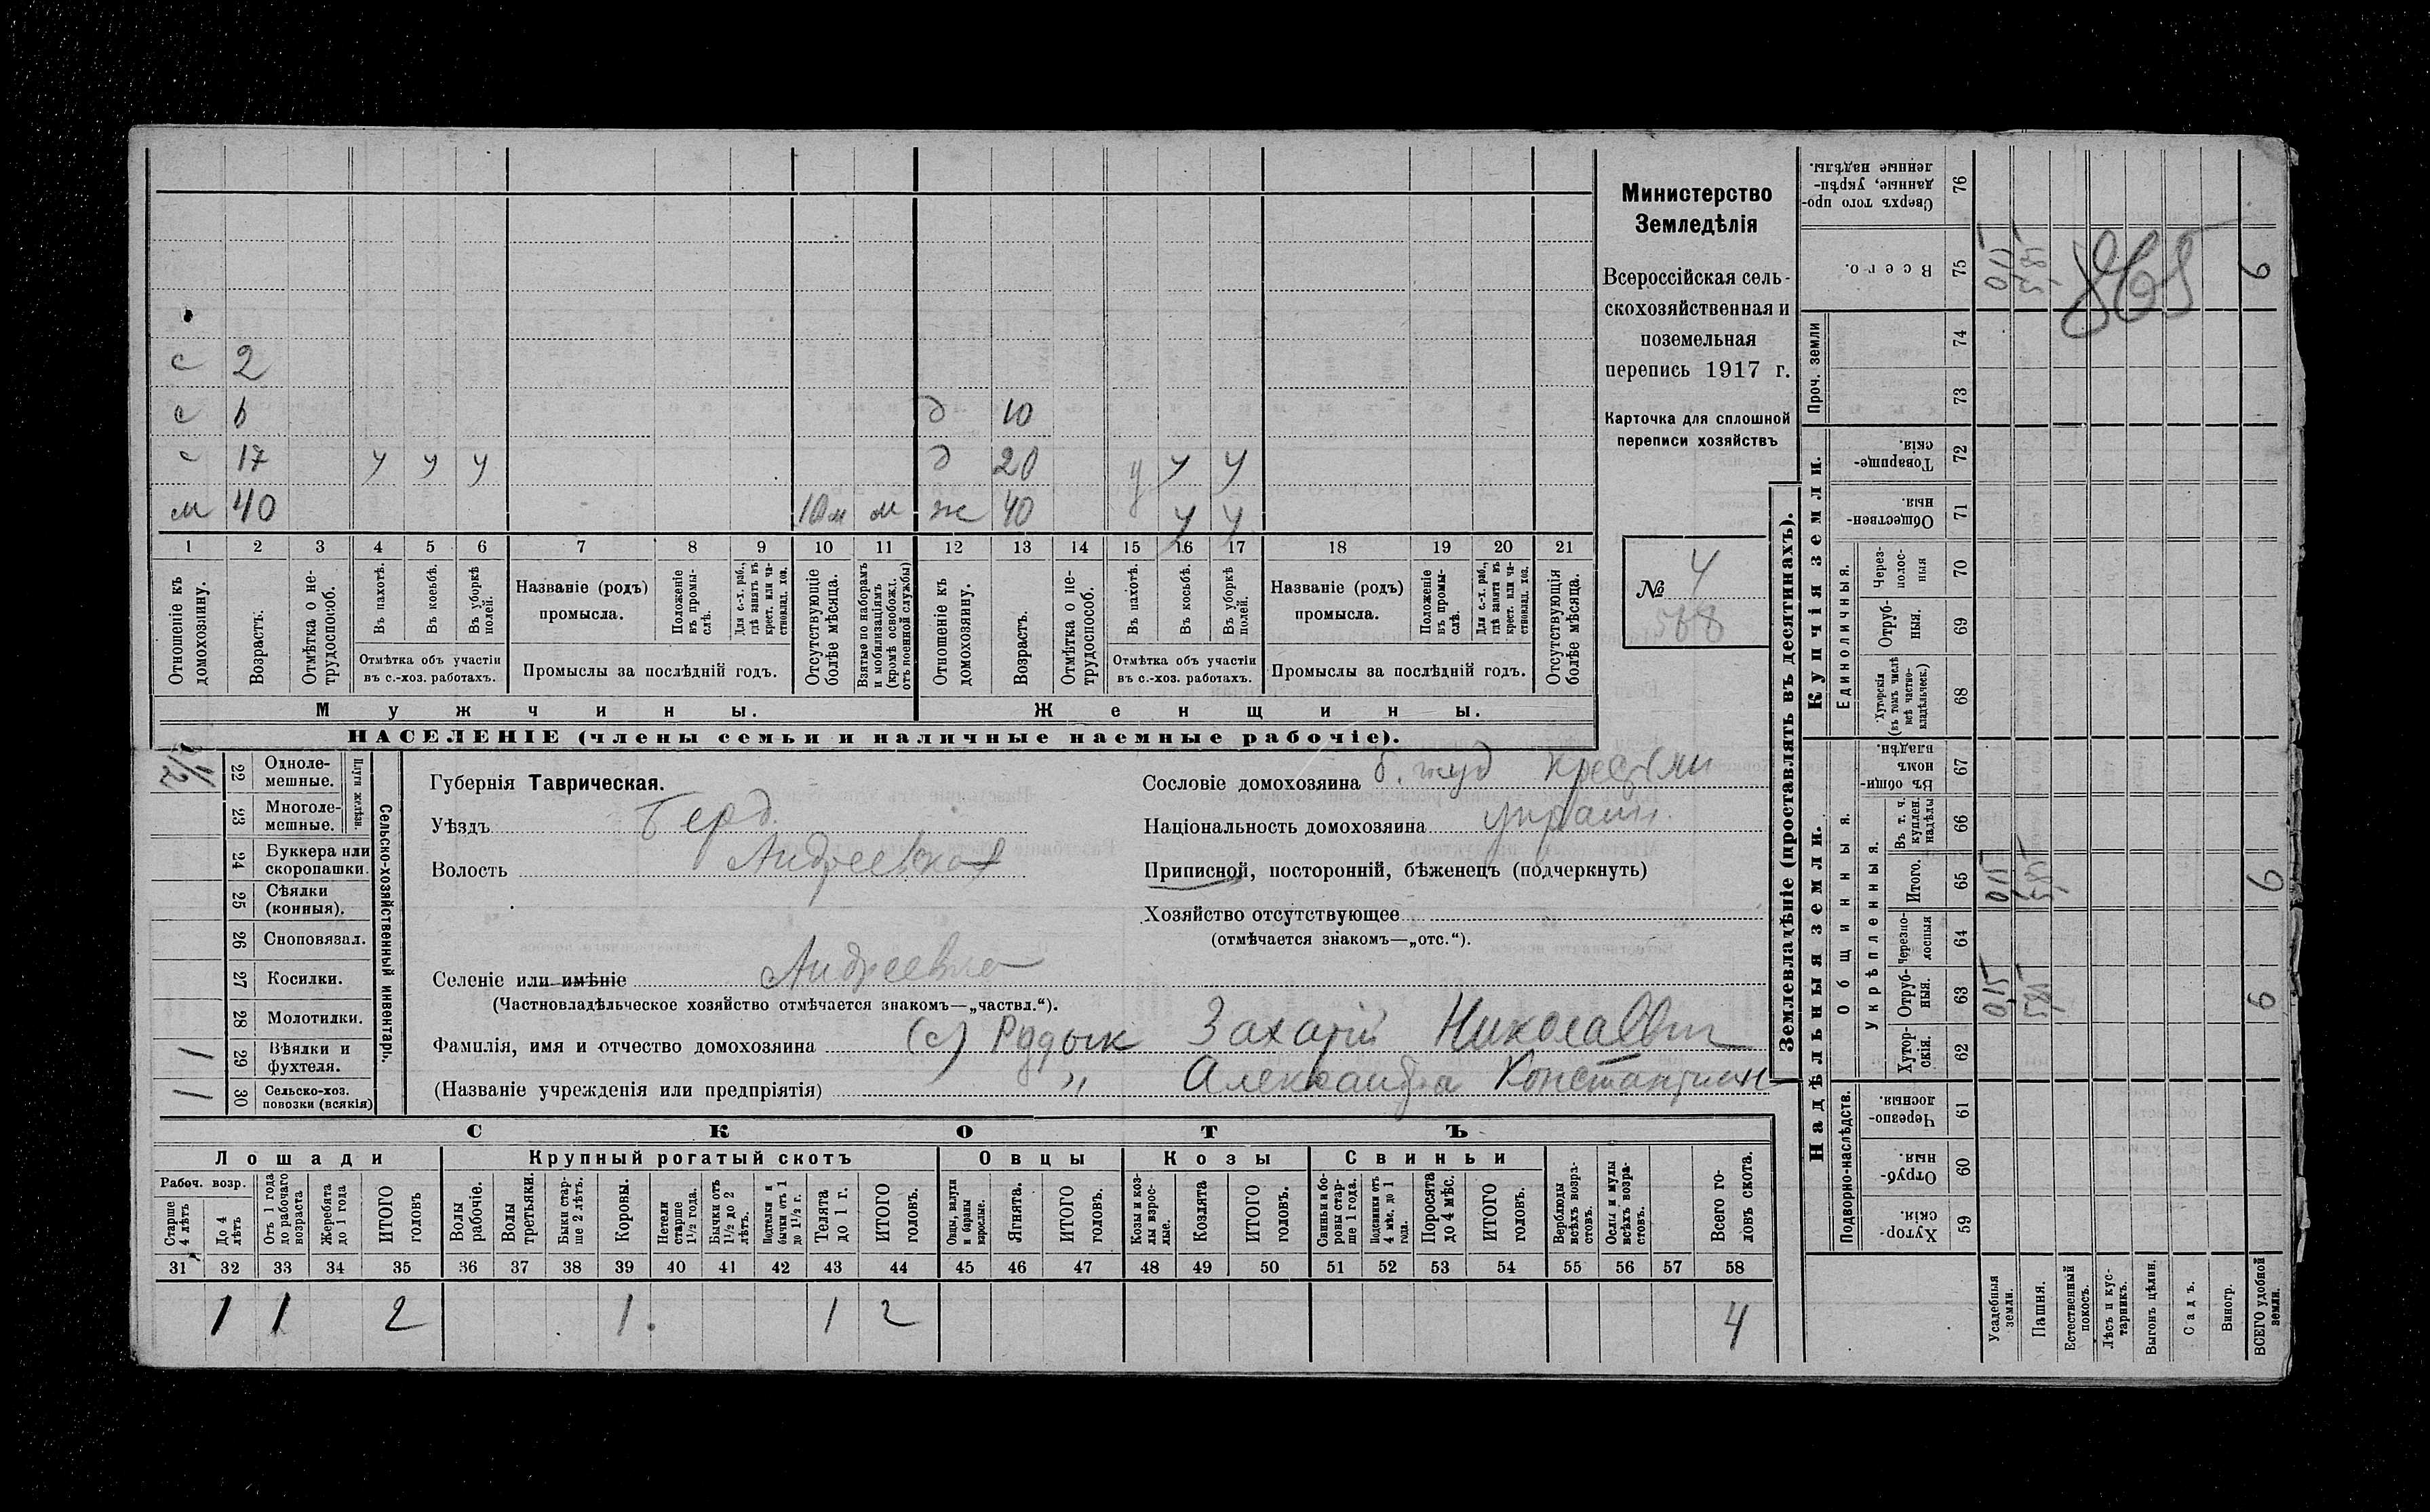 с 2
с 6 д 10
с 17 у у у д 20 у у у
м 40 10м м ж 40 у у
1 2 3 4 5 6 7 8 9 10 11 12 13 14 15 16 17 18 19 20 21
Отношеніе къ домохозяину.
Возрастъ.
Отмѣтка о не-трудоспособ.
Въ пахотѣ.
Въ косьбѣ.
Въ уборкѣ полей.
Отмѣтка объ участіи
въ с.-хоз. работахъ.
Названіе (родъ)
промысла.
Положеніе въ промы-слѣ.
Для с.-х. раб., гдѣ занятъ въ крест. или ча-стновлад. хоз.
Промыслы за послѣдній годъ.
Отсутствующіе болѣе мѣсяца.
Взятые по наборамъ и мобилизаціямъ (кромѣ освобожд. отъ военной службы)
Отношеніе къ домохозяину.
Возрастъ.
Отмѣтка о не-трудоспособ.
Въ пахотѣ.
Въ косьбѣ.
Въ уборкѣ полей.
Отмѣтка объ участіи
въ с.-хоз. работахъ.
Названіе (родъ)
промысла.
Положеніе въ промы-слѣ.
Для с.-х. раб., гдѣ занята въ крест. или ча-стновлад. хоз.
Промыслы за послѣдній годъ.
Отсутствующія болѣе мѣсяца.
Мужчины.
Женщины.
НАСЕЛЕНІЕ (члены семьи и наличные наемные рабочіе).
Министерство
Земледѣлія
Всероссійская сель-
скохозяйственная и
поземельная
перепись 1917 г.
Карточка для сплошной
переписи хозяйствъ
№ 4
568
1/2 22 Одноле-мешные.
23 Многоле-мешные.
Плуги желѣзн.
24 Буккера или скоропашки.
25 Сѣялки (конныя).
26 Сноповязал.
27 Косилки.
28 Молотилки.
1 29 Вѣялки и фухтеля.
1 30 Сельско-хоз. повозки (всякія)
Сельско-хозяйственный инвентарь.
Губернія Таврическая.
Уѣздъ Берд.
Волость Андреевская
Селеніе или имѣніе Андреевка
(Частновладѣльческое хозяйство отмѣчается знакомъ—„частвл.“).
Фамилія, имя и отчество домохозяина (с) Рудык Захарій Николаевич
(Названіе учрежденія или предпріятія) „ Александра Константин
Сословіе домохозяина
Національность домохозяина украин.
Приписной, посторонній, бѣженецъ (подчеркнуть)
Хозяйство отсутствующее
(отмѣчается знакомъ—„отс.“).
СКОТЪ
Лошади
Рабоч. возр.
Старше 4 лѣтъ
До 4 лѣтъ
Отъ 1 года до рабочаго возраста
Жеребята до 1 года
ИТОГО головъ
Крупный рогатый скотъ
Волы рабочіе.
Волы третьяки.
Быки стар-ше 2 лѣтъ.
Коровы.
Нетели старше 1½ года.
Бычки отъ 1½ до 2 лѣтъ.
Подтелки и бычки отъ 1 до 1½ г.
Телята до 1 г.
ИТОГО головъ.
Овцы
Овцы, валухи и бараны взрослые.
Ягнята.
ИТОГО головъ.
Козы
Козы и коз-лы взрос-лые.
Козлята
ИТОГО головъ.
Свиньи
Свиньи и бо-ровы стар-ше 1 года.
Подсвинки отъ 4 мѣс. до 1 года.
Поросята до 4 мѣс.
ИТОГО головъ.
Верблюды всѣхъ возра-стовъ.
Ослы и мулы всѣхъ возра-стовъ.
Всего го-ловъ скота.
31 32 33 34 35 36 37 38 39 40 41 42 43 44 45 46 47 48 49 50 51 52 53 54 55 56 57 58
1 1 2 1. 1 2 4
Землевладѣніе (проставлять въ десятинахъ).
Сверхъ того про-данные, укрѣп-ленные надѣлы. 76
Всего. 75 6
865
Проч. земли
74
73
Купчія земли.
Товарище-скія. 72
Обществен-ныя. 71
Единоличныя.
Через-полос-ныя 70
Отруб-ныя. 69
Хуторскія (въ томъ числѣ всѣ частно-владѣльческ.) 68
Надѣльныя земли.
Общинныя.
Въ общин-номъ владѣн. 67
Укрѣпленныя.
Въ т. ч. куплен. надѣлы 66
Итого. 65 6
Черезпо-лосныя 64
Отруб-ныя. 63 6
Хутор-скія. 62
Подворно-наслѣдств.
Черезпо-лосныя. 61
Отруб-ныя. 60
Хутор-скія. 59
Усадебныя земли.
Пашня.
Естественный покосъ.
Лѣсъ и кус-тарникъ.
Выгонъ цѣлин.
Садъ.
Виногр.
ВСЕГО удобной земли.